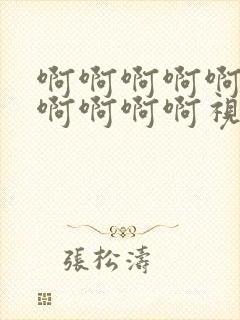 啊啊啊啊啊
啊啊啊啊視
張松濤